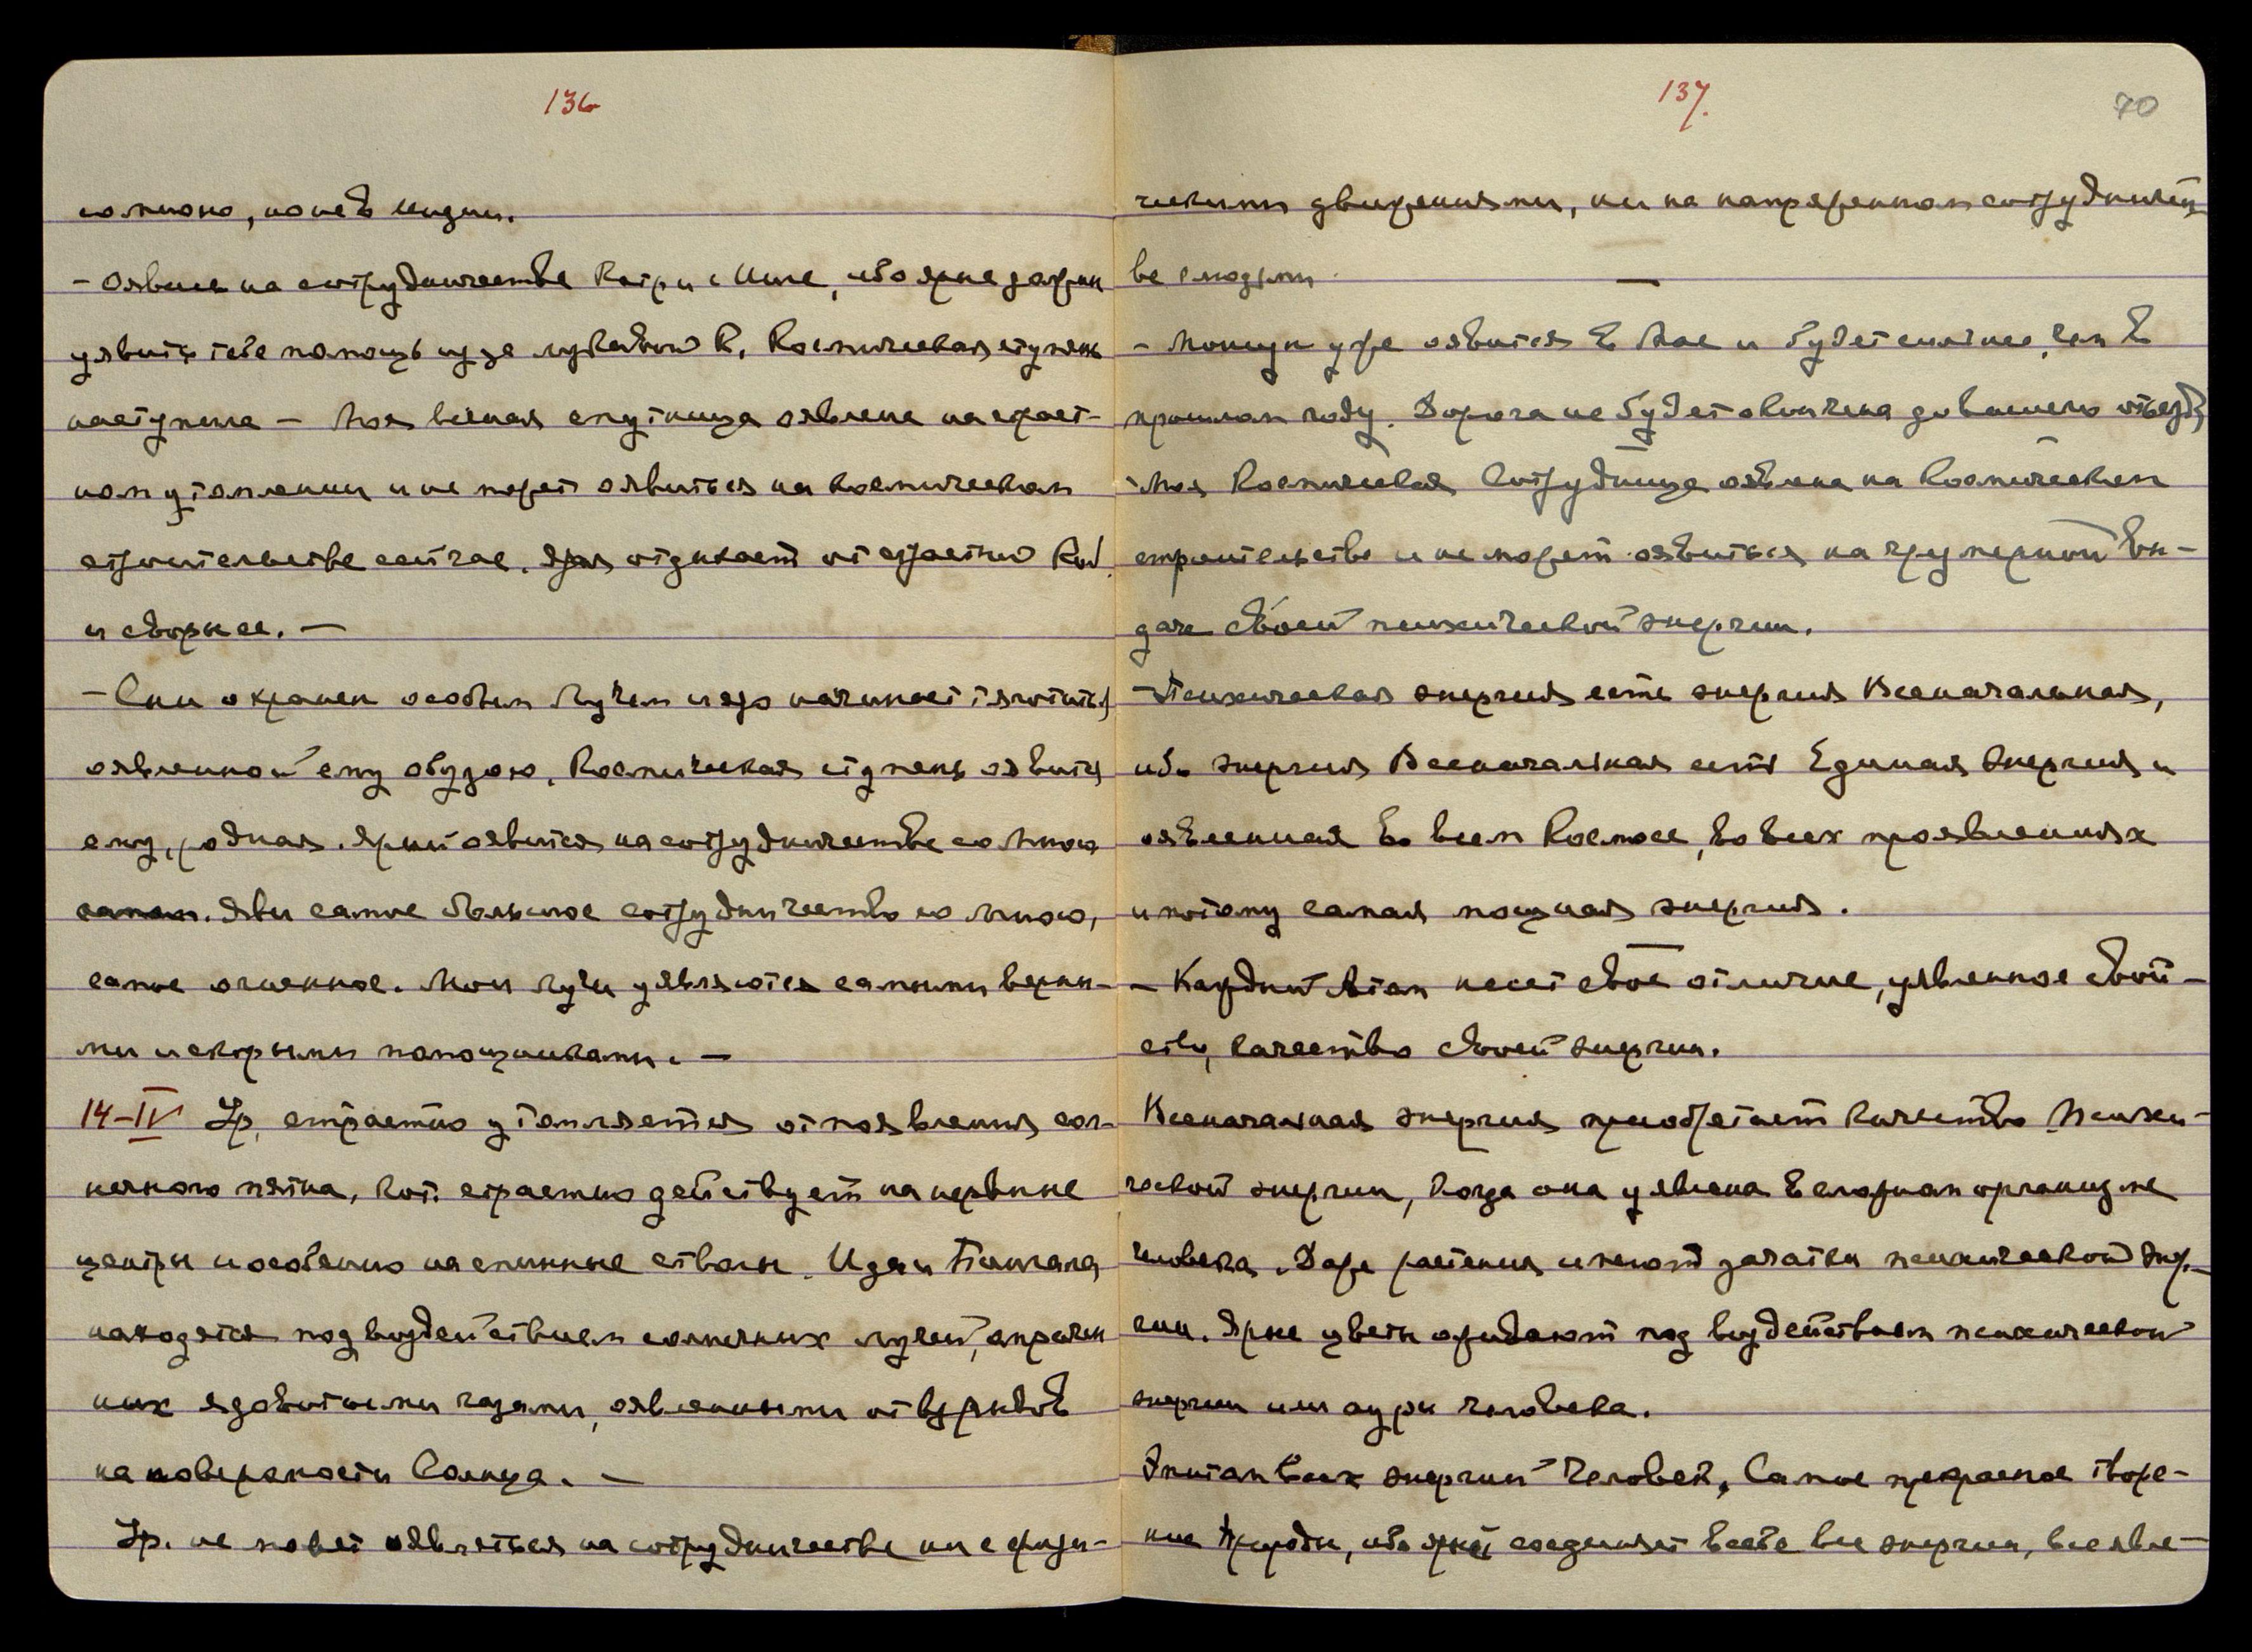 136
со мною, но не в Индии.
- Явись на сотрудничестве Катри и Мне, ибо ярые должны
уявить тебе помощь из-за лукавой К. Космическая ступень
наступила — Моя вечная спутница явлена на страст-
ном утомлении и не может оявиться на космическом
строительстве сейчас. Яро отдыхает от страстной Кой.
и своры ее. —
- Он охранен особым Лучем и яро начинает тяготиться
оявленной ему обузою. Космическая ступень оявится
ему, родная. Ярый оявится на сотрудничестве со Мною
самом. Яви самое большое сотрудничество со Мною,
самое огненное. Мои Лучи уявляются самыми верны-
ми и скорыми помощниками. —
14-IV Ур. страстно утомляется от появления сол-
нечного пятна, кот. страстно действует на нервные
центры и особенно на спинные стволы. Ида и Пингала
находятся под воздействием солнечных лучей, отравлен
ных ядовитыми газами, оявленными от взрывов
на поверхности Солнца. —
Ур. не может оявляться на сотрудничестве ни с физи-
137.
70
ческими движениями, ни на напряженном сотрудничест
ве с людьми.
—
- Монсун уже оявится в Мае и будет сильнее, чем в
прошлом году. Дорога не будет окончена до вашего отъезда
- Моя Космическая Сотрудница оявлена на Космическом
строительстве и не может оявиться на чрезмерной вы-
даче своей психической энергии.
- Психическая энергия есть энергия Всеначальная,
ибо энергия Всеначальная есть Единая Энергия и
оявленная во всем Космосе, во всех проявлениях
и потому самая мощная энергия.
—
- Каждый Атом несет свое отличие, уявленное свой-
ство, качество своей энергии.
Всеначальная энергия приобретает качество Психи-
ческой энергии, когда она уявлена в сложном организме
человека. Даже растения имеют зачатки психической энер-
гии. Ярые цветы оживают под воздействием психической
энергии или ауры человека.
Эпитом всех энергий Человек, Самое прекрасное творе-
ние Природы, ибо ярый соединяет в себе все энергии, все явле-